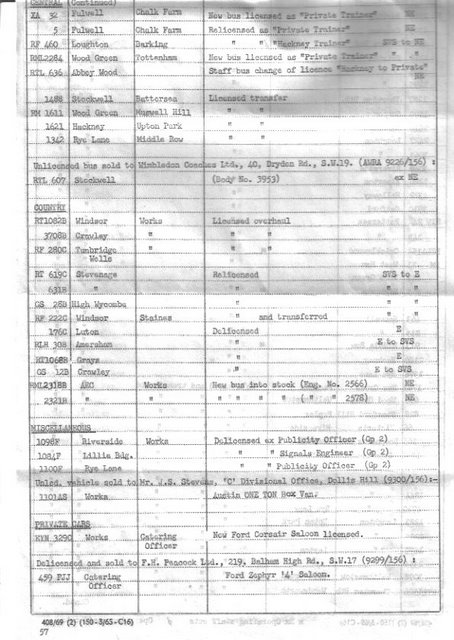 CENTRAL (Continued)
XA 32 Fulwell Chalk Farm New bus licensed as "Private Trainer" NE
5 Fulwell Chalk Farm Relicensed as "Private Trainer"
RF 460 Loughton Barking " " "Hackney Trainer" SVS to NE
RML2284 Wood Green Tottenham New bus licensed as "Private Trainer" NE
RTL 636 Abbey Wood Staff bus change of licence "Hackney to Private" NE
1488 Stockwell Battersea Licensed transfer
RM 1611 Wood Green Muswell Hill " "
1621 Hackney Upton Park " "
1342 Rye Lane Middle Row " "
Unlicensed bus sold to Wimbledon Coaches Ltd., 40, Dryden Rd., S.W.19. (AMRA 9226/156) :
RTL 607 Stockwell (Body No. 3953) ex NE
COUNTRY
RT1082B Windsor Works Licensed overhaul
3708B Crawley " " "
RF 280C Tunbridge Wells " " "
RT 619C Stevenage Relicensed SVS to E
631B " " " "
GS 28B High Wycombe " " "
RF 222C Windsor Staines " and transferred " "
176C Luton Delicensed E
RLH 30B Amersham " E to SVS
RT1068B Grays " E
GS 12B Crawley " E to SVS
RML2318B AEC Works New bus into stock (Eng. No. 2566) NE
2321B " " " " " " ( " " 2578) NE
MISCELLANEOUS
1098F Riverside Works Delicensed ex Publicity Officer (Gp 2)
1084F Lillie Bdg. " " Signals Engineer (Gp 2)
1100F Rye Lane " " Publicity Officer (Gp 2)
Unlcd. vehicle sold to Mr. J.S. Stevens, 'C' Divisional Office, Dollis Hill (9300/156):-
1101AS Works Austin ONE TON Box Van.
PRIVATE CARS
KYN 329C Works Catering Officer New Ford Corsair Saloon licensed.
Delicensed and sold to F.H. Peacock Ltd., 219, Balham High Rd., S.W.17 (9299/156) :
459 PJJ Catering Officer Ford Zephyr '4' Saloon.
408/69 (2) (150-3/65-C16)
57